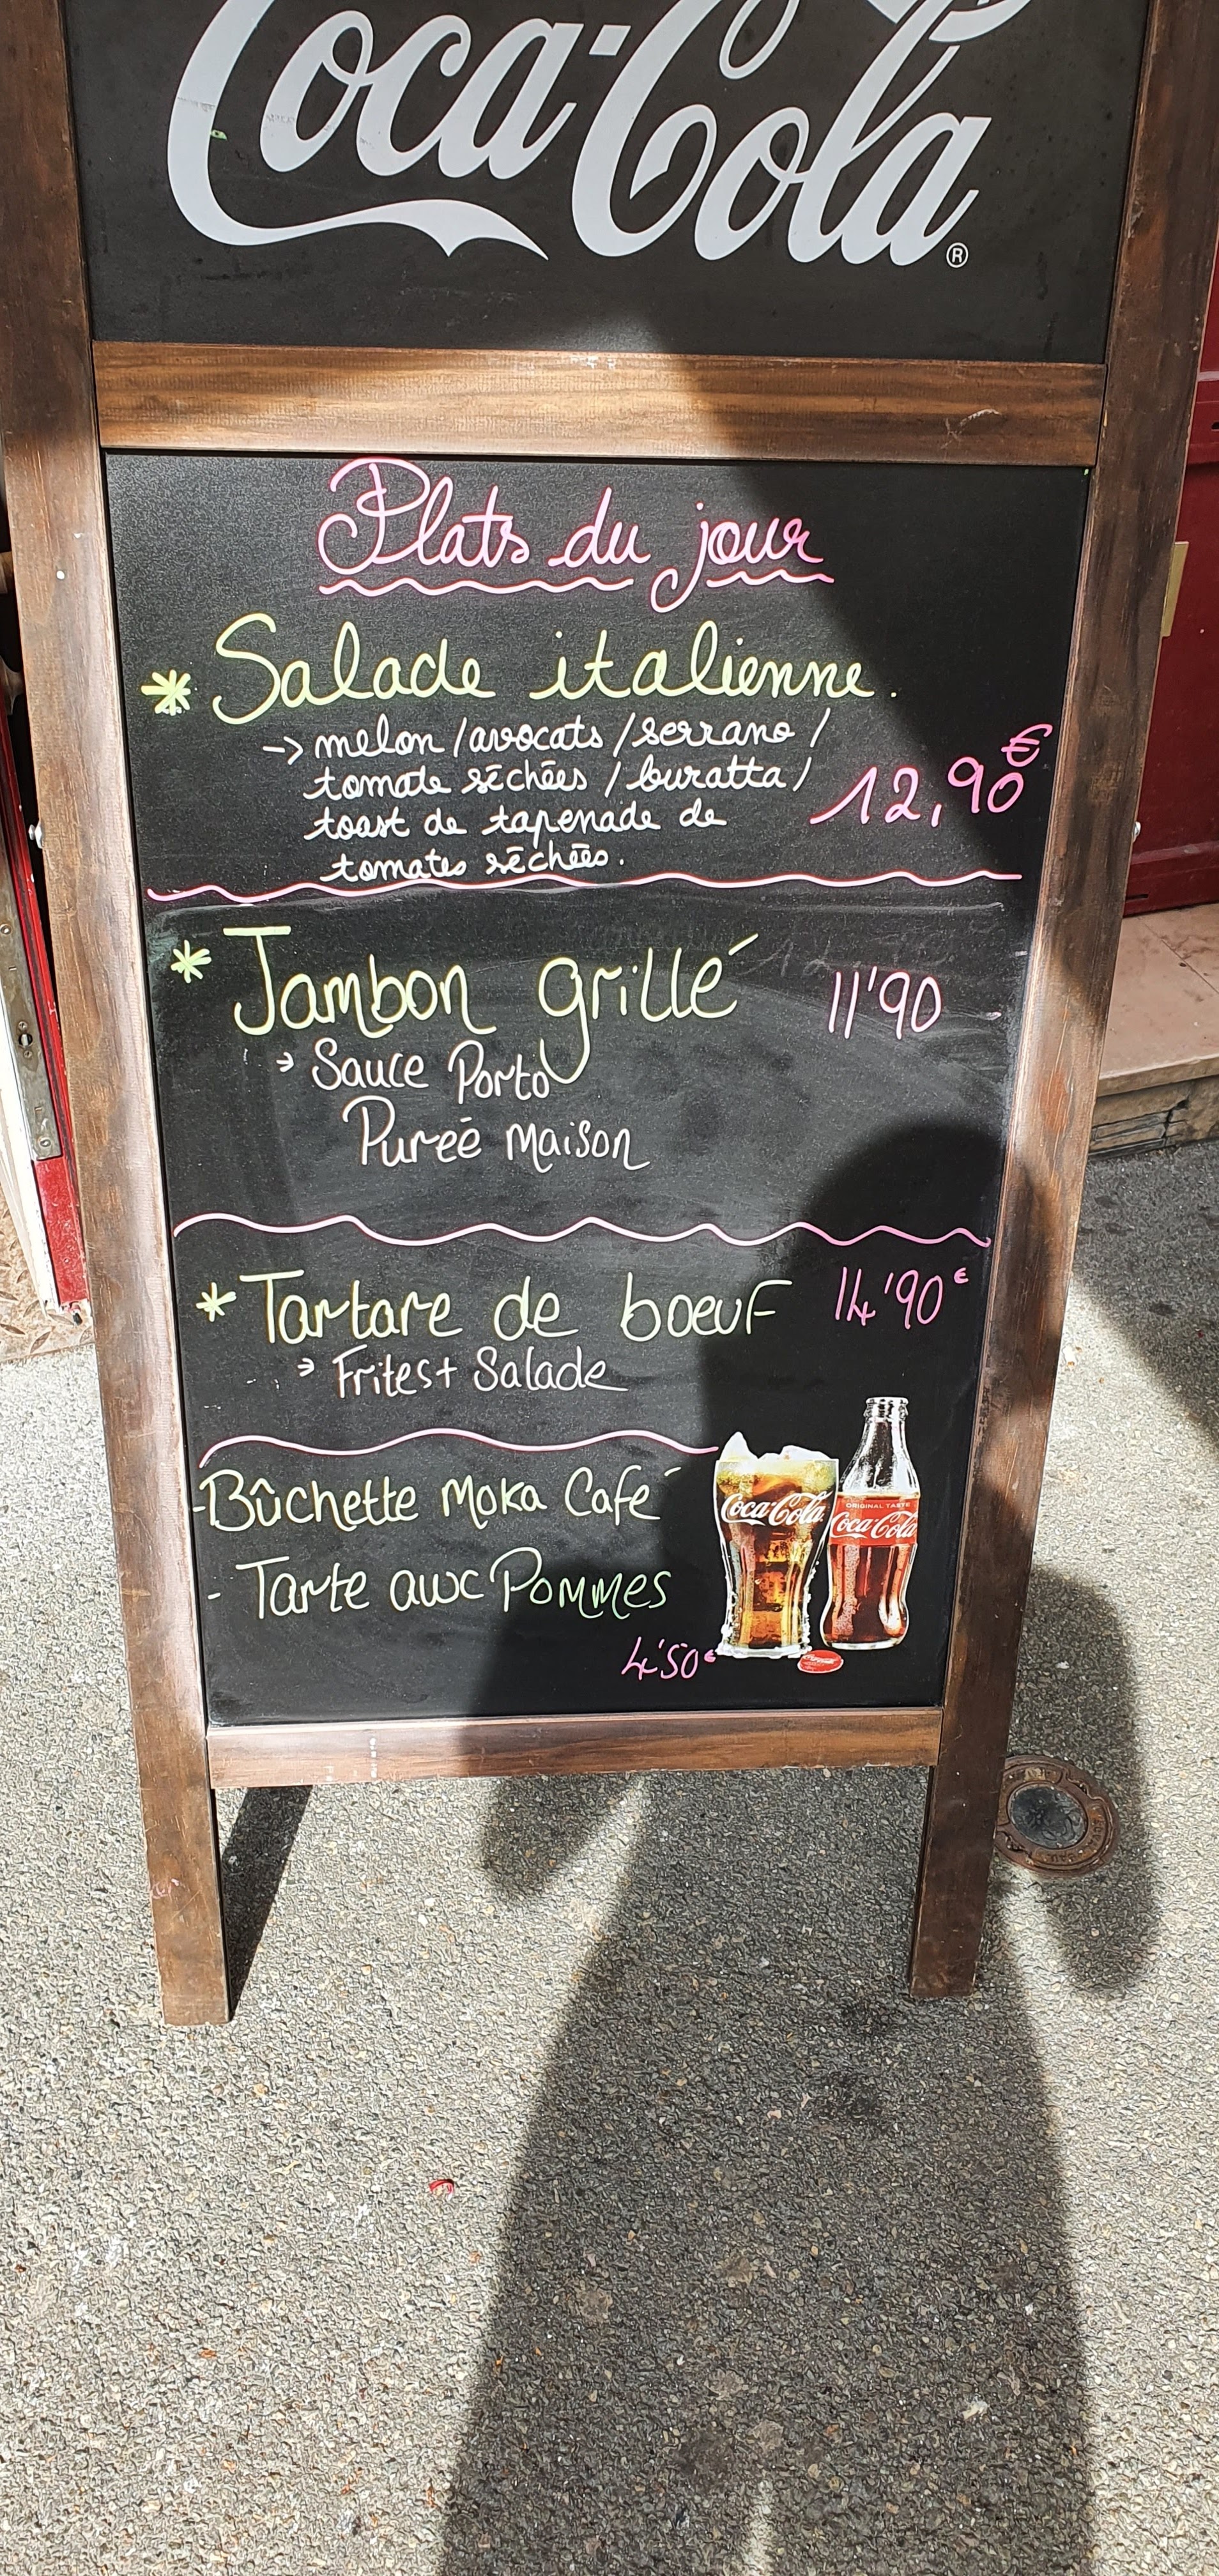 Coca-Cola®
Plats du jour
* Salade italienne.
-> melon / avocats / serrano /
tomate séchées / buratta /
toast de tapenade de
tomates séchées.
12,90€
* Jambon grillé 11'90
→ Sauce Porto
Pureé Maison
* Tartare de boeuf 14'90€
→ Frites + Salade
- Bûchette Moka Café
- Tarte aux Pommes
4'50€
Coca-Cola
ORIGINAL TASTE
Coca-Cola